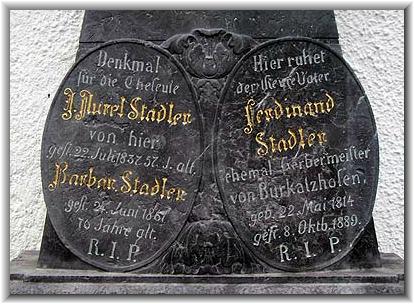 Denkmal
für die Eheleute
J. Aurel Stadler
von hier
gest. 22. Juli 1837. 57. J. alt.
Barbar. Stadler
gest. 24. Juni 1861
76 Jahre alt.
R. I. P.
Hier ruhet
der theure Vater
Ferdinand
Stadler
ehemal Gerbermeister
von Burkalzhofen,
geb. 22. Mai 1814
gest. 8. Okth. 1889.
R. I. P.